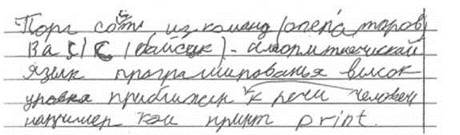 Порг сотв из команд (операторов)
Ba S/C (байсик) - алгоритмический
язык программированья высок
уровня приближен к речи человек
например кэй принт print.